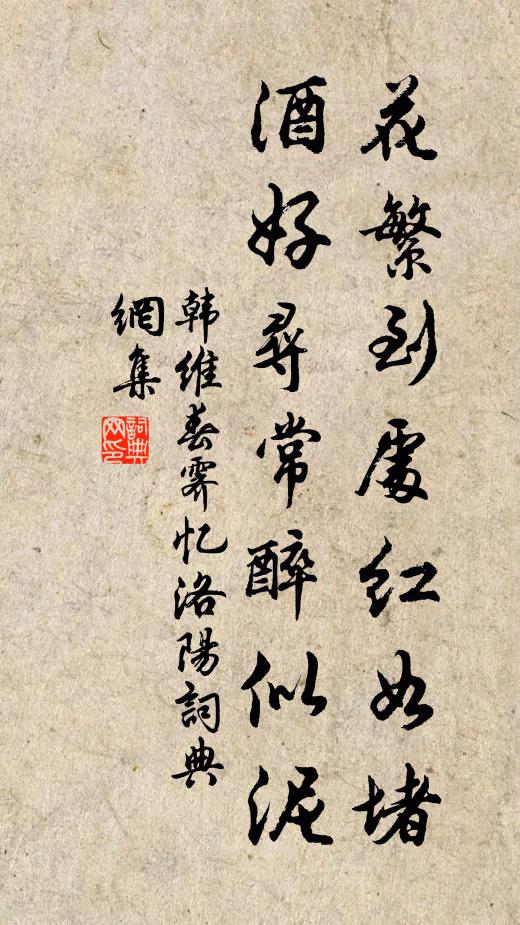 花繁到處红如堵
酒好尋常醉似泥
韩维春霽忆洛陽詞典
網集
詞典
网印